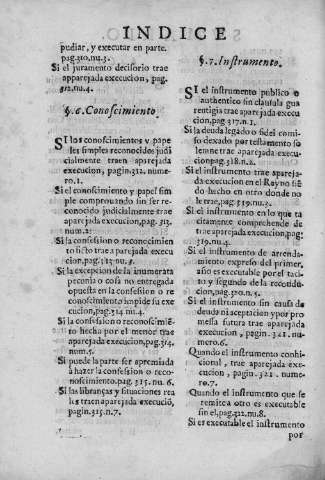 INDICE
pudiar, y executar en parte.
pag.310.nu.3.
Si el juramento decisorio trae
aparejada execucion, pag.
312.nu.4.
§.6.Conoscimiento.
SI los conoscimientos y pape
les simples reconocidos judi
cialmente traen aparejada
execucion, pagin.312. nume-
ro.1.
Si el conoscimiento y papel sim
ple comprouando sin ser re-
conocido judicialmente trae
aparejada execucion, pag.313.
num.2.
Si la confession o reconocimien
to ficto trae aparejada execu
cion, pag.313.nu.3.
Si la excepcion de la innumerata
pecunia o cosa no entregada
opuesta en la confession o re
conoscimiento impide su exe
cucion, pag.314. nu.4.
Si la confession o reconoscimiẽ
to hecha por el menor trae
aparejada execucion, pag.314.
num.5.
Si puede la parte ser apremiada
à hazer la confession o reco-
noscimiento.pag. 315. nu.6.
Si las libranças y situaciones rea
les traen aparejada execució,
pagin.315.n.7.
§.7.Instrumento.
SI el instrumento publico o
authentico sin clausula gua
rentigia trae aparejada execu
cion, pag.317.n.1.
Si la deuda legado o fidei comis
so dexado por testamento so
lenne trae aparejada execu-
cion pag.318.n.2.
Si el instrumento trae apareja-
da execucion en el Rayno siẽ
do hecho en otro donde no
le trae, pag.319.nu.3.
Si el instrumento en lo que ta
citamente comprehende de
trae aparejada execucion, pag.
319.nu.4.
Si el instrumento de arrenda-
miento expreso del primer,
año es executable por el taci-
to y segundo de la recondu-
cion, pag.320.n.5.
Si el instrumento sin causa de
deuda ni aceptacion y por pro
messa futura trae aparejada
execucion, pagin. 321. nu-
mero.6.
Quando el instrumento condi-
cional, trae aparejada exe-
cucion, pagin. 321. nume-
ro.7.
Quando el instrumento que se
remite a otro es executable
sin el, pag.322.nu.8.
Si es executable el instrumento
por